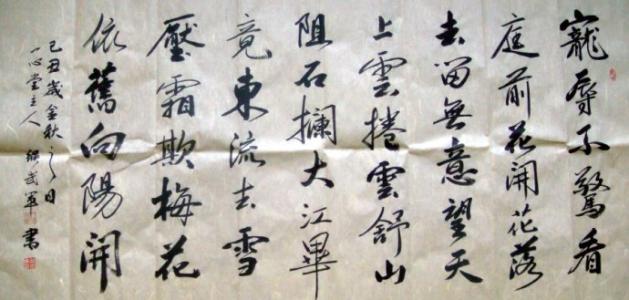 寵辱不驚看
庭前花開花落
去留無意望天
上雲捲雲舒山
阻石攔大江畢
竟東流去雪
壓霜欺梅花
依舊向陽開
己丑歲金秋之日
一心堂主人 武軍書